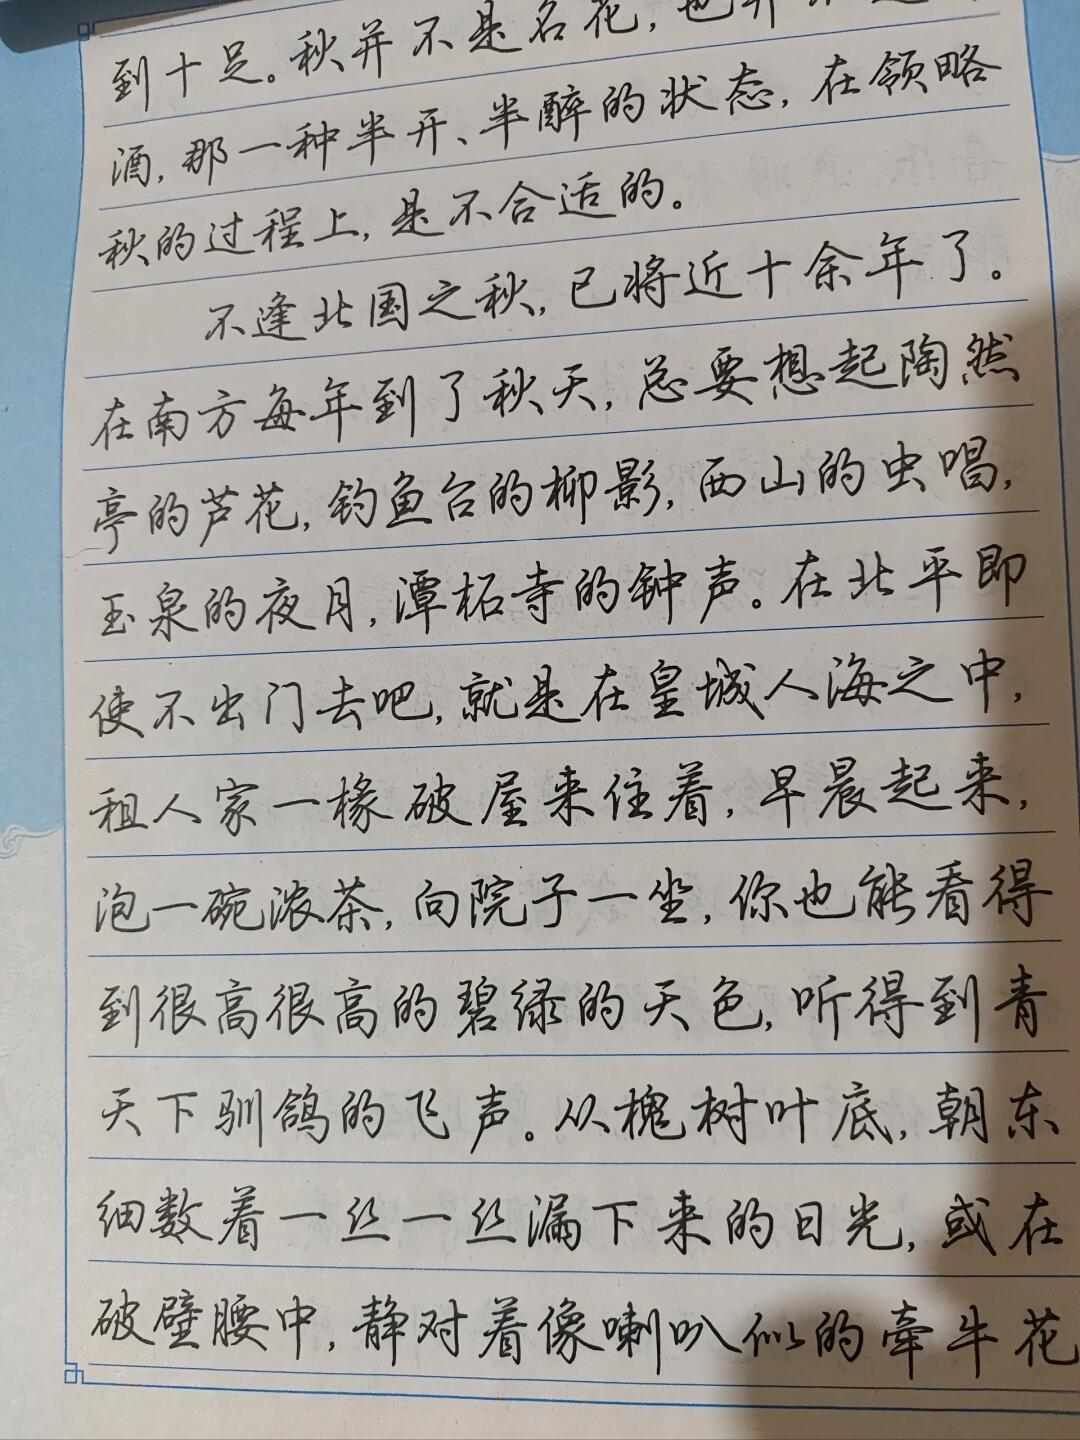 到十足。秋并不是名花，也并
酒，那一种半开、半醉的状态，在领略
秋的过程上，是不合适的。
不逢北国之秋，已将近十余年了。
在南方每年到了秋天，总要想起陶然
亭的芦花，钓鱼台的柳影，西山的虫唱，
玉泉的夜月，潭柘寺的钟声。在北平即
使不出门去吧，就是在皇城人海之中，
租人家一椽破屋来住着，早晨起来，
泡一碗浓茶，向院子一坐，你也能看得
到很高很高的碧绿的天色，听得到青
天下驯鸽的飞声。从槐树叶底，朝东
细数着一丝一丝漏下来的日光，或在
破壁腰中，静对着像喇叭似的牵牛花